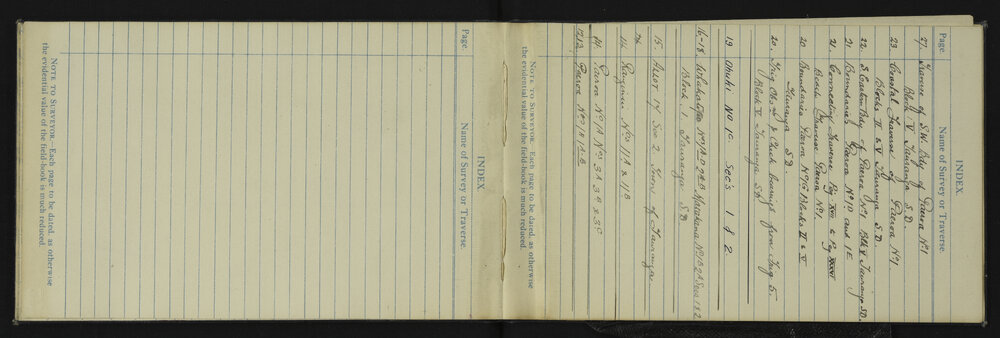 INDEX
Page. Name of Survey or Traverse.
27. Traverse of S.W. Bdy of Paeroa No 1
Block V Tauranga S.D.
23. Coastal Traverse of Paeroa No 1
Blocks II & V Tauranga S.D.
22. S. Eastern Bdy of Paeroa No 1 Blk V Tauranga S.D.
21 Boundaries Paeroa No 1D and 1E
21. Connecting Traverse Peg XVII to Peg
Beach Traverse Paeroa No 1.
20 Boundaries Paeroa No Blocks II & V
Tauranga S.D.
20. Trig Obs & Check bearings from Trig
Block V Tauranga S.D.
19 Ohuki No 1C Sec's 1 & 2
16-18. No Matakana No
Block 1 Tauranga S.D
15. Allot 17 Sec 2 Town of Tauranga.
14
14 No's 11A & 11B
14. No 1A No's 3A 3B & 3C
12,13. Paeroa
NOTE TO SURVEYOR.—Each page to be dated, as otherwise
the evidential value of the field-book is much reduced.
INDEX
Page. Name of Survey or Traverse.
NOTE TO SURVEYOR.—Each page to be dated, as otherwise
the evidential value of the field-book is much reduced.